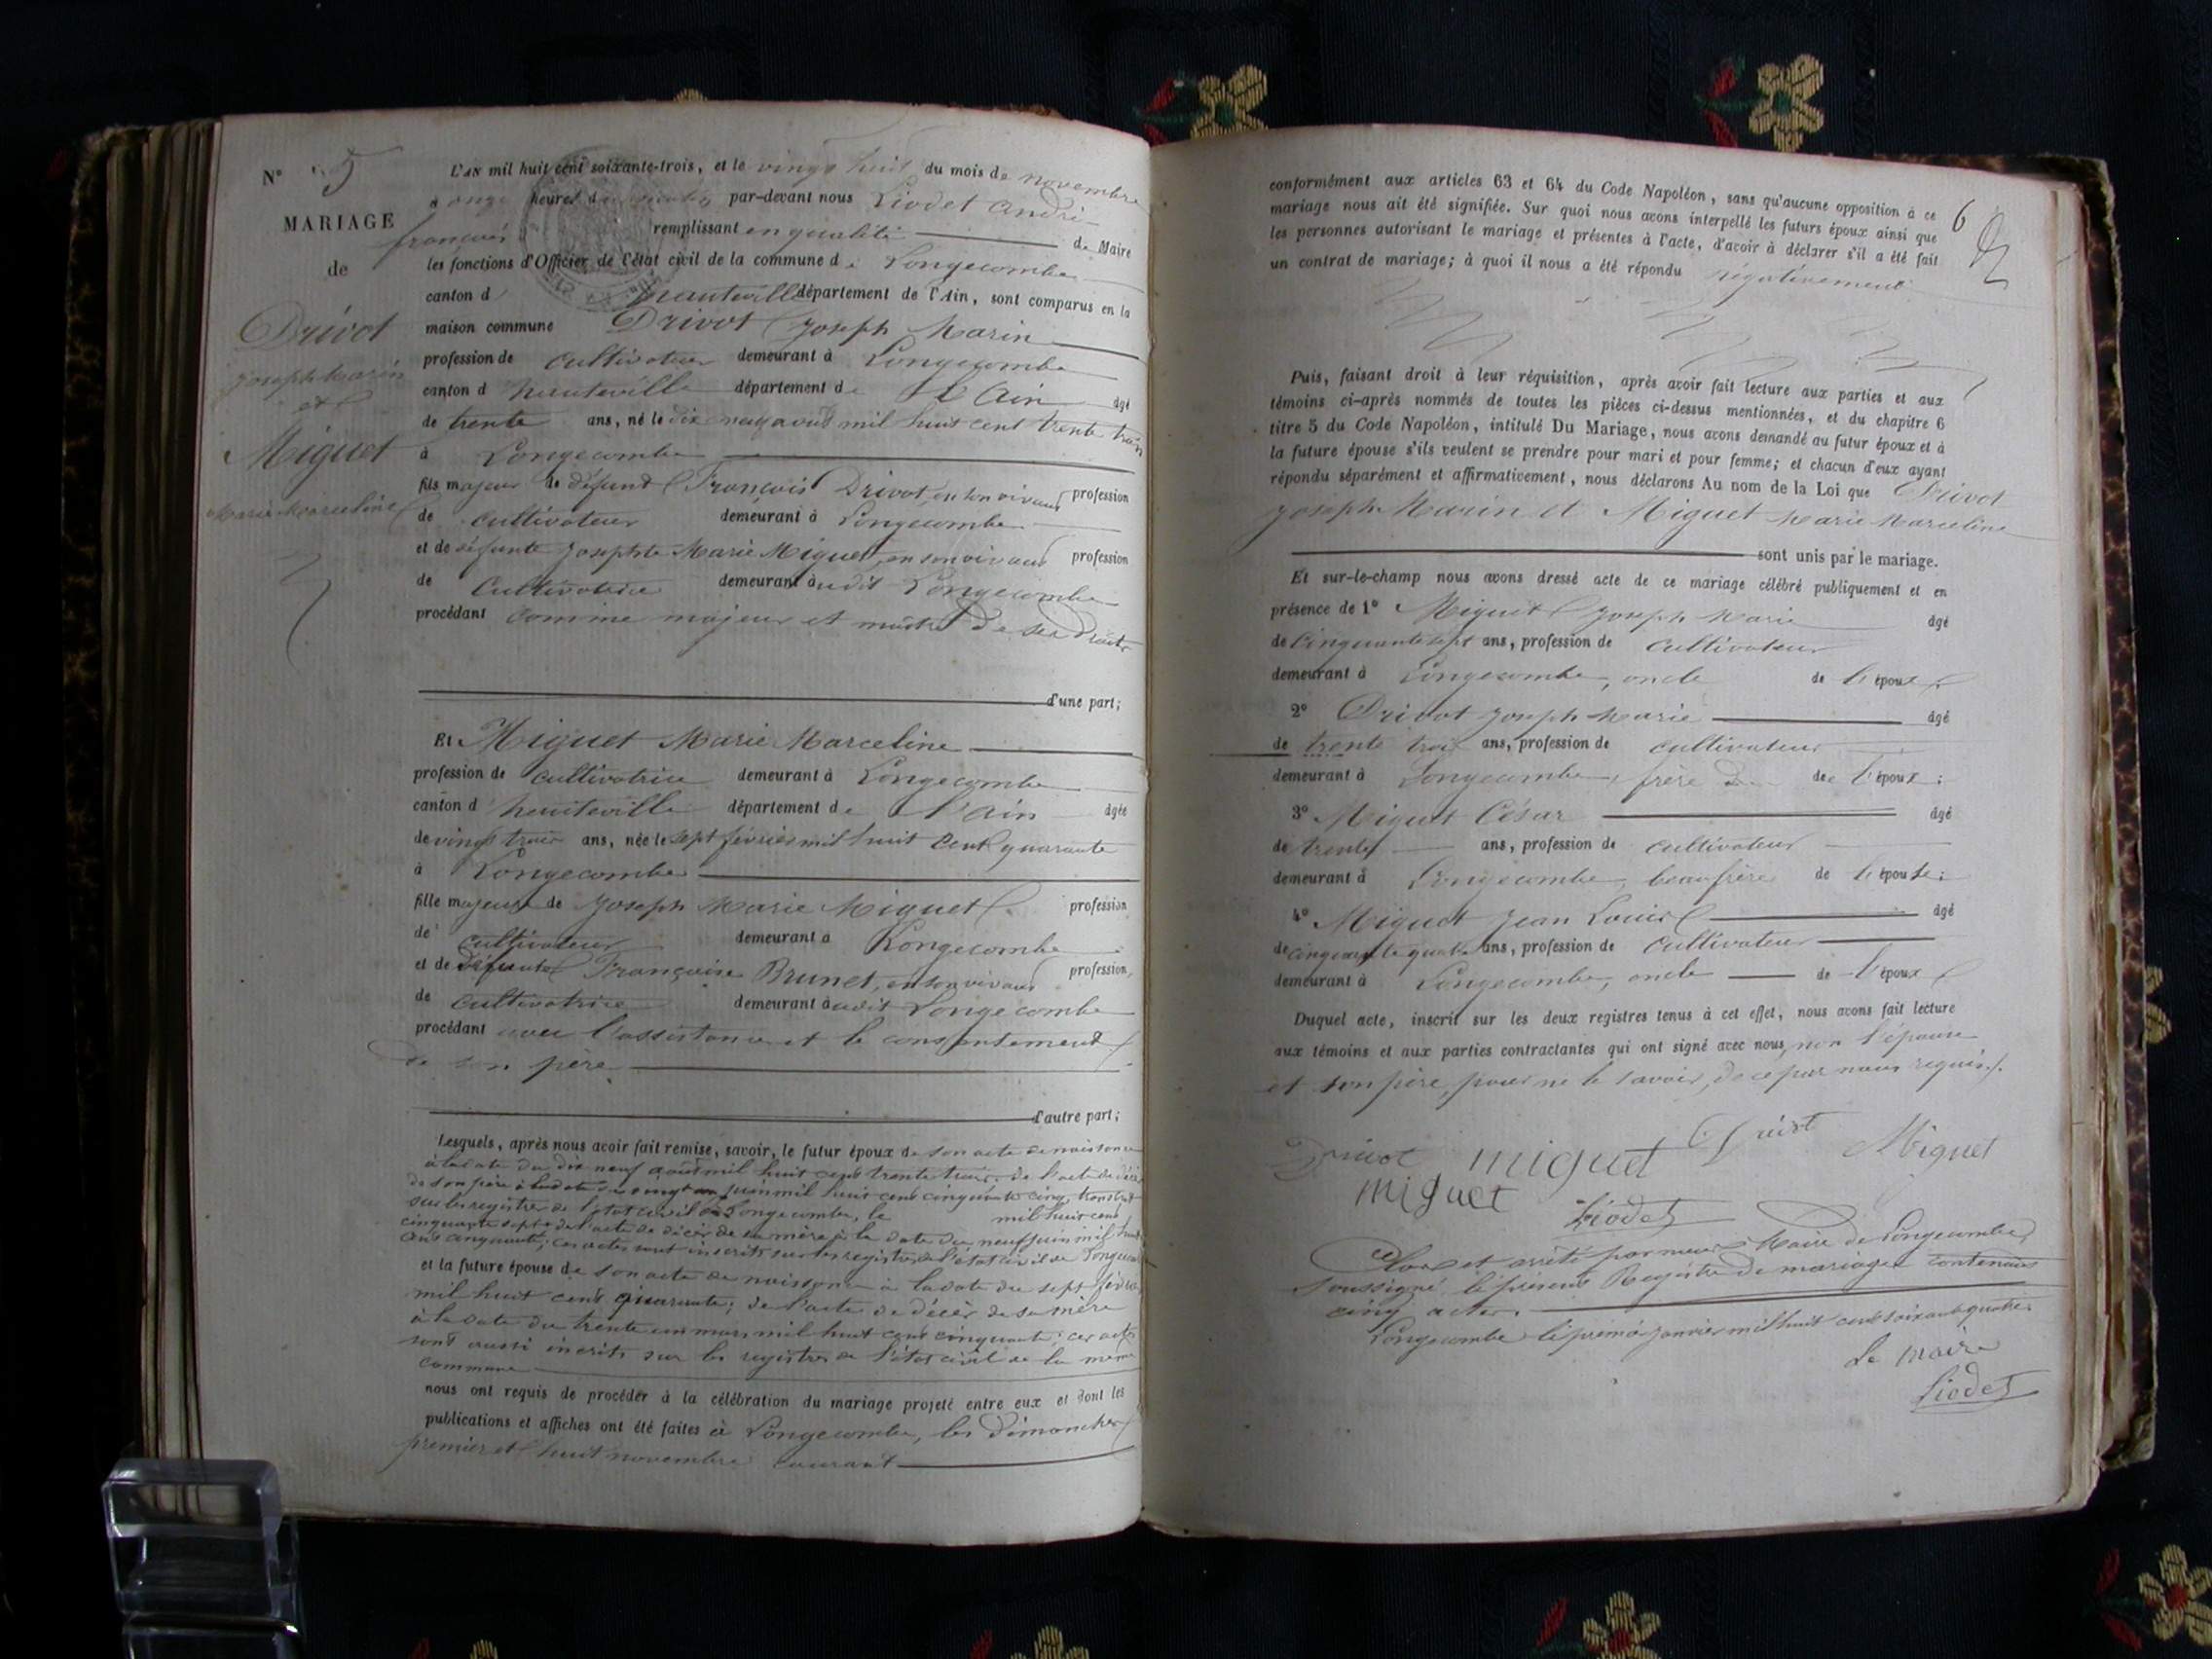 N° 5
MARIAGE
de
Drivot
Joseph Marin
et
Miguet
Marie Marceline
L'AN mil huit cent soixante-trois, et le vingt huit du mois de novembre
à onze heures du par-devant nous Liodet André
françois remplissant en qualité de Maire
les fonctions d'Officier de l'état civil de la commune de Longecombe
canton d hauteville département de l'Ain, sont comparus en la
maison commune Drivot Joseph Marin
profession de cultivateur demeurant à Longecombe
canton d hauteville département de L'Ain âgé
de trente ans, né le dix neuf aout mil huit cent trente trois
à Longecombe
fils majeur de défunt François Drivot, en son vivant profession
de cultivateur demeurant à Longecombe
et de défunte Josephte Marie Miguet, en son vivant profession
de Cultivatrice demeurant àudit Longecombe
procédant comme majeur et maître de ses droits
d'une part;
Et Miguet Marie Marceline
profession de cultivatrice demeurant à Longecombe
canton d hauteville département de l'Ain âgée
de vingt trois ans, née le sept février mil huit cent quarante
à Longecombe
fille majeure de Joseph Marie Miguet profession
de cultivateur demeurant à Longecombe
et de défunte Françoise Brunet, en son vivant profession
de cultivatrice demeurant àudit Longecombe
procédant avec l'assistance et le consentement
de son père
d'autre part;
Lesquels, après nous avoir fait remise, savoir, le futur époux de son acte de naissance
à la date du dix neuf août mil huit cent trente trois, de l'acte de décès
de son père à la date du vingt juin mil huit cent cinquante cinq,
sur les registres de l'état civil de Longecombe, le mil huit cent
cinquante sept, de l'acte de décès de sa mère à la date du neuf juin mil huit
cent cinquante; ces actes sont inscrits sur les registres de l'état civil de Longecombe
et la future épouse de son acte de naissance à la date du sept février
mil huit cent quarante; de l'acte de décès de sa mère
à la date du trente un mars mil huit cent cinquante; ces actes
sont aussi inscrits sur les registres de l'état civil de la même
commune
nous ont requis de procéder à la célébration du mariage projeté entre eux et dont les
publications et affiches ont été faites à Longecombe, les dimanches
premier et huit novembre courant
6
conformément aux articles 63 et 64 du Code Napoléon, sans qu'aucune opposition à ce
mariage nous ait été signifiée. Sur quoi nous avons interpellé les futurs époux ainsi que
les personnes autorisant le mariage et présentes à l'acte, d'avoir à déclarer s'il a été fait
un contrat de mariage; à quoi il nous a été répondu négativement
Puis, faisant droit à leur réquisition, après avoir fait lecture aux parties et aux
témoins ci-après nommés de toutes les pièces ci-dessus mentionnées, et du chapitre 6
titre 5 du Code Napoléon, intitulé Du Mariage, nous avons demandé au futur époux et à
la future épouse s'ils veulent se prendre pour mari et pour femme; et chacun d'eux ayant
répondu séparément et affirmativement, nous déclarons Au nom de la Loi que Drivot
Joseph Marin et Miguet Marie Marceline
sont unis par le mariage.
Et sur-le-champ nous avons dressé acte de ce mariage célébré publiquement et en
présence de 1° Miguet Joseph Marie âgé
de Cinquante sept ans, profession de cultivateur
demeurant à Longecombe, oncle de l'époux;
2° Drivot Joseph Marie âgé
de trente trois ans, profession de cultivateur
demeurant à Longecombe, frère de l'époux;
3° Miguet César âgé
de trente ans, profession de cultivateur
demeurant à Longecombe, beaufrère de l'épouse;
4° Miguet Jean Louis âgé
de cinquante quatre ans, profession de cultivateur
demeurant à Longecombe, oncle de l'époux
Duquel acte, inscrit sur les deux registres tenus à cet effet, nous avons fait lecture
aux témoins et aux parties contractantes qui ont signé avec nous, non l'épouse
et son père, pour ne le savoir, de ce par nous requis.
Drivot miguet Miguet
miguet
Liodet
Clos et arrêté par nous Maire de Longecombe,
soussigné, le présent Registre de mariage contenant
cinq actes.
Longecombe le premier janvier mil huit cent soixante quatre
Le maire
Liodet